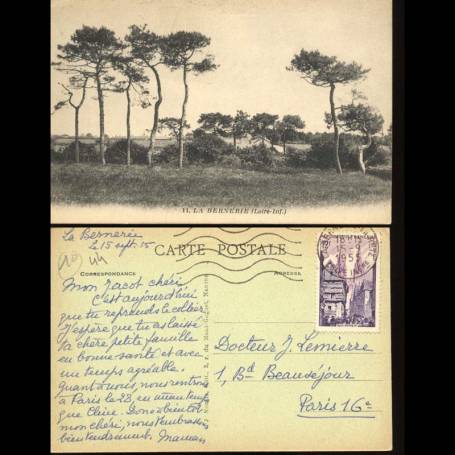 11. LA BERNERIE (Loire-Inf.)
La Bernerie
le 15 sept. 15
CARTE POSTALE
CORRESPONDANCE
ADRESSE
Mon Jacot chéri
C'est aujourd'hui
que tu reprends le collier
J'espère que tu as laissé
ta chère petite famille
en bonne santé et avec
un temps agréable.
Quant à nous, nous rentrons
à Paris le 23, en même temps
que Claire. Donc bientôt
mon chéri, nous t'embrassons
bien tendrement. Maman
Docteur J. Lemierre
1, Bd Beauséjour
Paris 16e